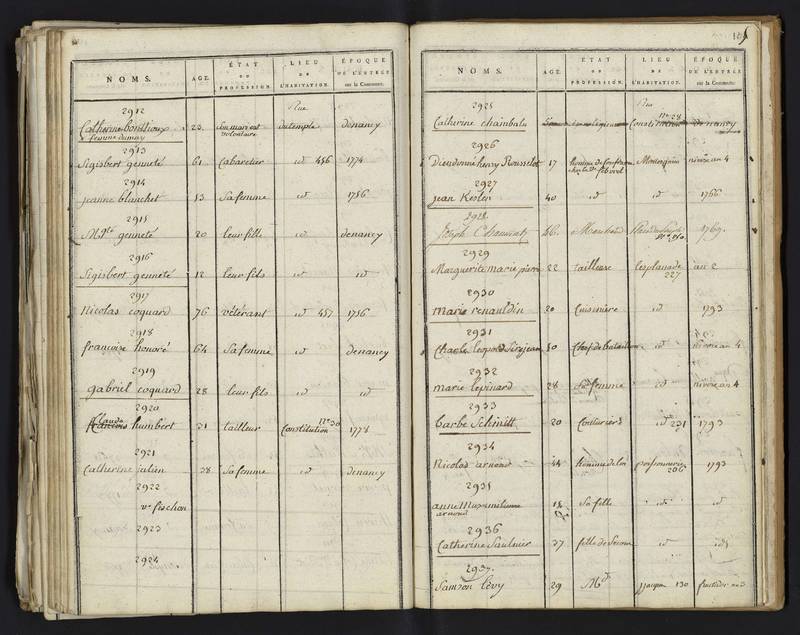 NOMS. AGE. ÉTAT OU PROFESSION. LIEU DE L'HABITATION. ÉPOQUE DE L'ENTRÉE sur la Commune.
2912 Rue
Catherine 23 Son mari est volontaire du temple de nancy
femme
2913
Sigisbert genneté 61 Cabaretier id 456 1774
2914
jeanne blanchet 53 Sa femme id 1756
2915
Mte genneté 20 leur fille id de nancy
2916
Sigisbert genneté 12 leur fils id id
2917
Nicolas coquard 76 vétérant id 457 1756
2918
françoise honoré 64 Sa femme id de nancy
2919
gabriel coquard 28 leur fils id id
2920
Claude humbert 31 tailleur Constitution n° 30 1778
2921
Catherine julien 38 Sa femme id de nancy
2922
ve fischon
2923
2924
105
NOMS. AGE. ÉTAT OU PROFESSION. LIEU DE L'HABITATION. ÉPOQUE DE L'ENTRÉE sur la Commune.
2925 Rue
Catherine Constitution n° 28 de nancy
2926
Dieudonné henry Rousselot 17 nivose an 4
2927
jean Kesler 40 id id 1766
2928
Joseph 1769.
2929
Marguerite marie pierre 22 tailleuse l'esplanade 227 an 2
2930
marie renauldin 20 Cuisinière id 1793
2931
Charle leopold 50 Chef de bataillon id nivose an 4
2932
marie lepinard 28 Sa femme id nivose an 4
2933
barbe Schmitt 20 Couturiere id 231 1793
2934
Nicolas arnoud 44 homme de loi poissonnerie 206 1793
2935
anne Maximilienne arnoud 18 Sa fille id id
2936
Catherine Saulnier 37 fille de id id
2937.
Samson Levy 29 Md 130